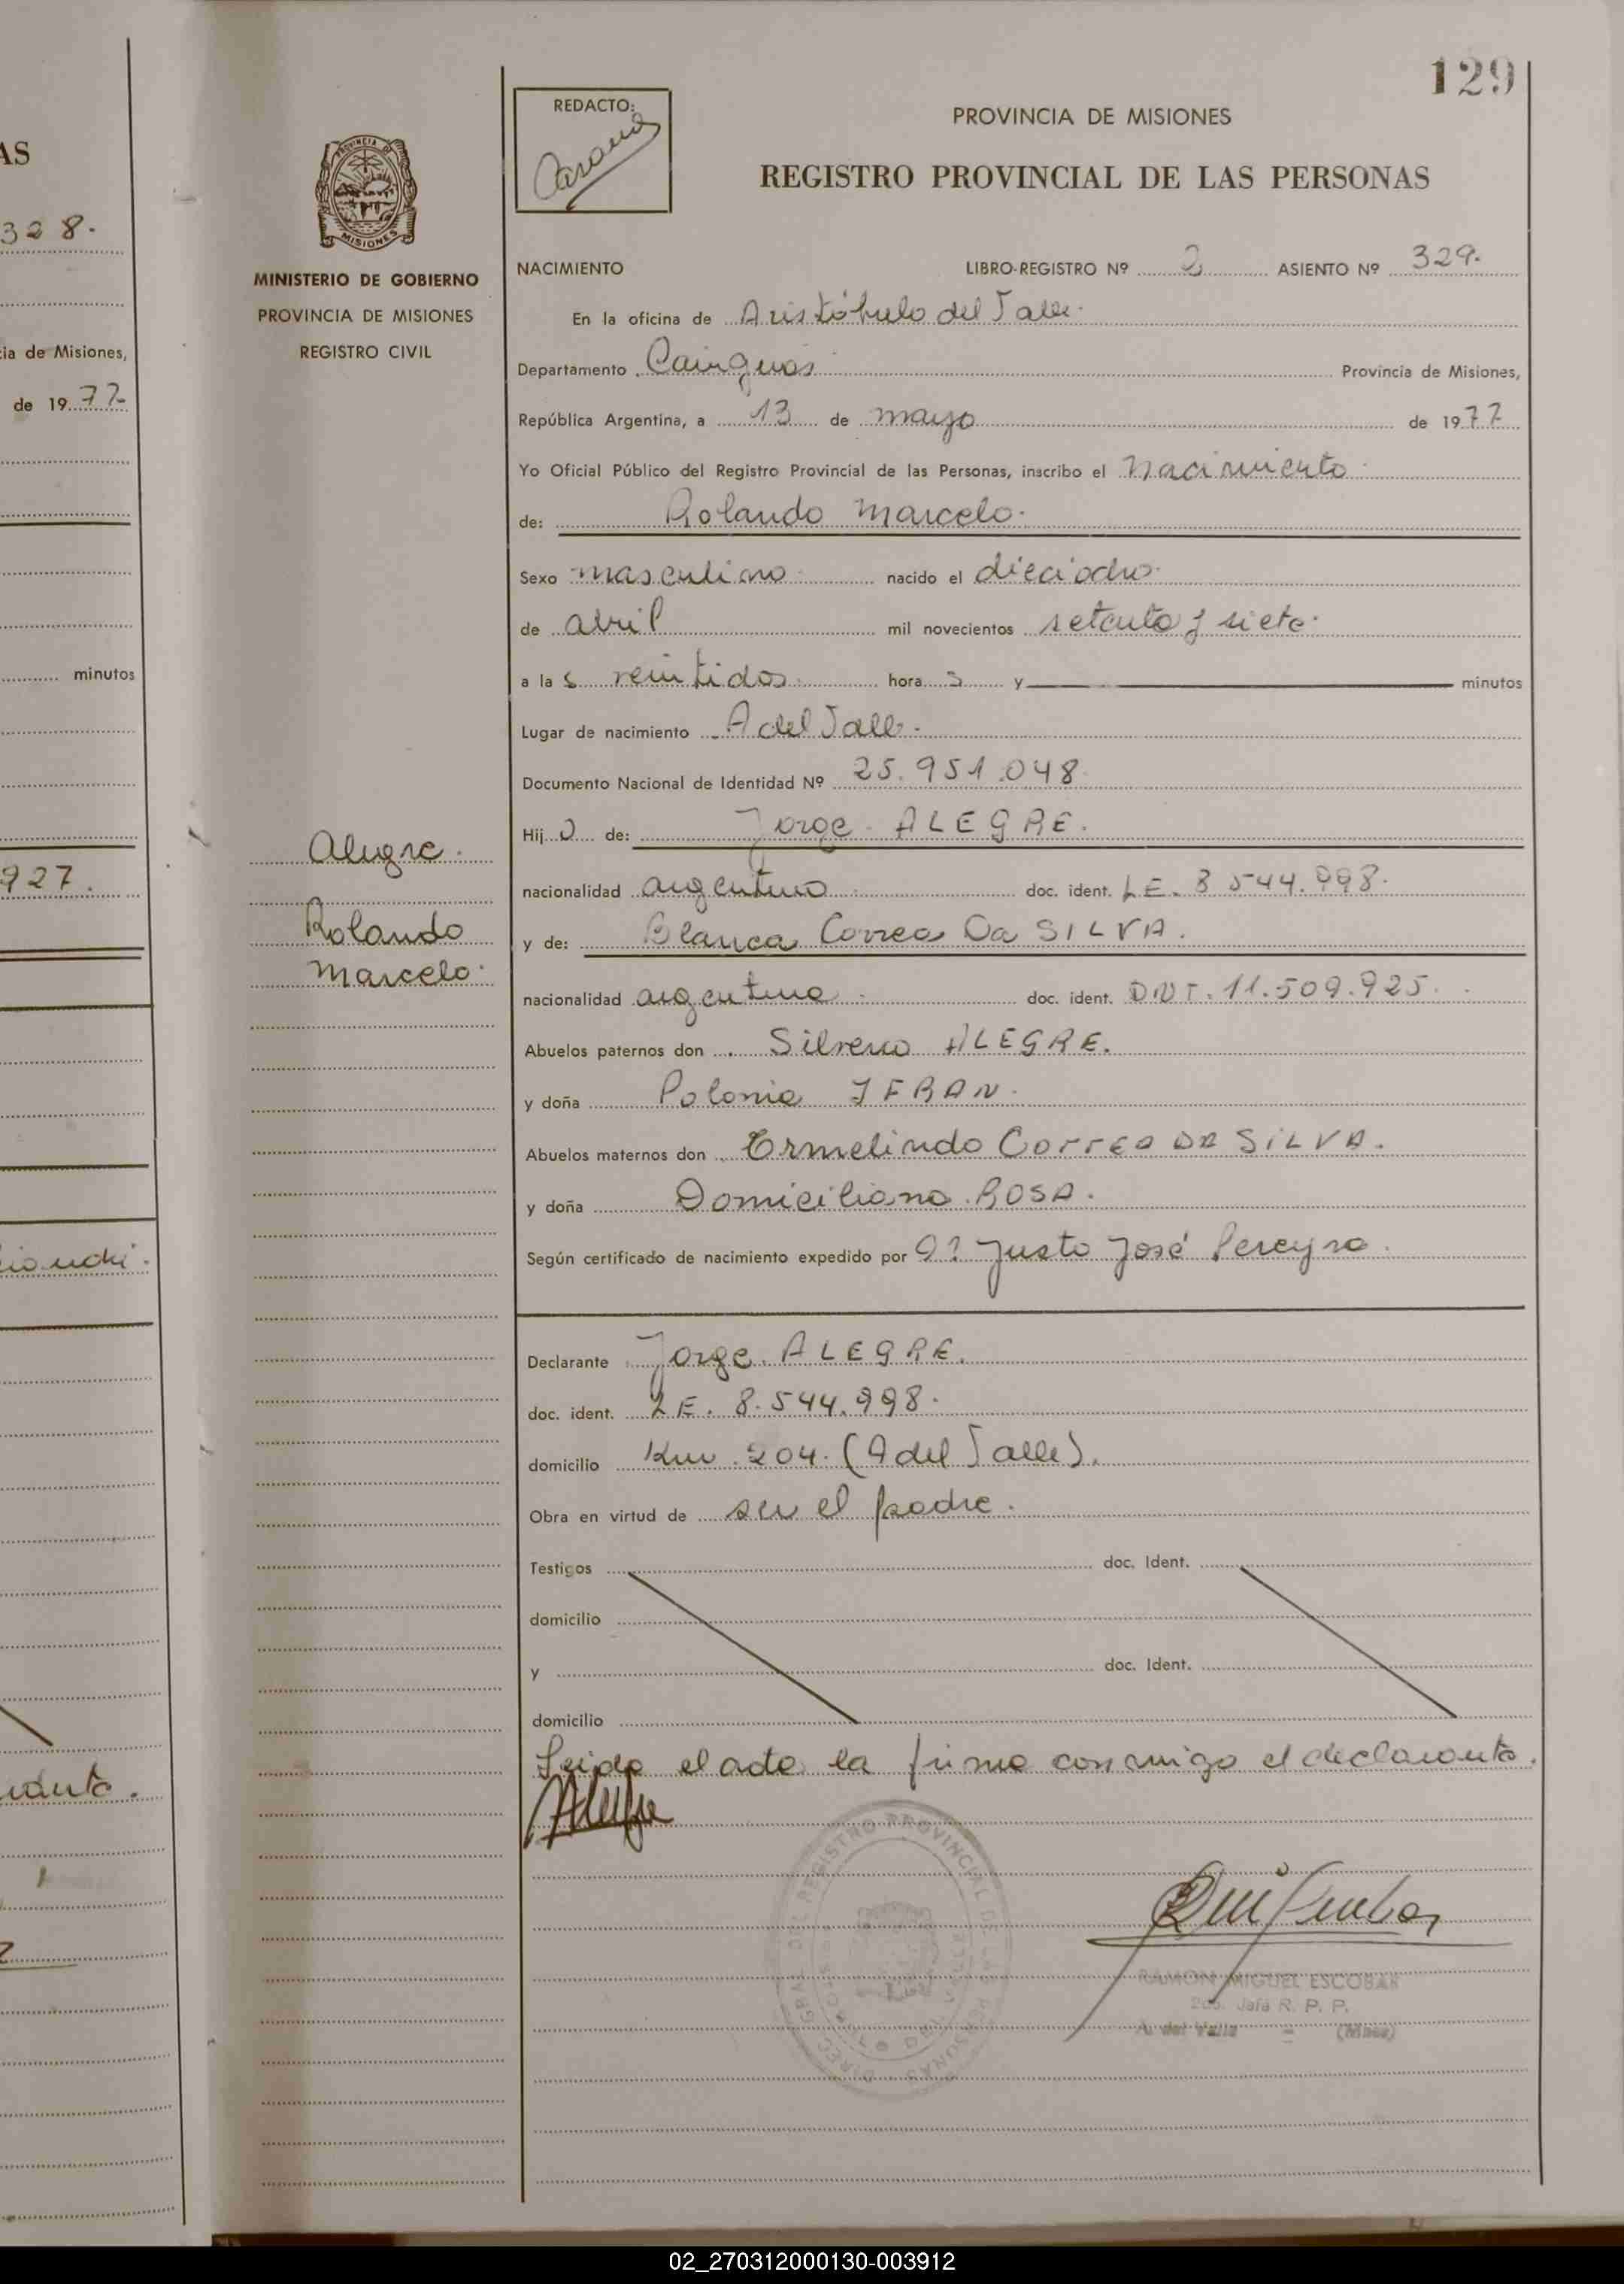 AS
328.
cia de Misiones,
de 1977
minutos
927.
129
PROVINCIA DE MISIONES
REGISTRO PROVINCIAL DE LAS PERSONAS
REDACTO:
PROVINCIA DE
MISIONES
MINISTERIO DE GOBIERNO
PROVINCIA DE MISIONES
REGISTRO CIVIL
NACIMIENTO LIBRO-REGISTRO Nº 2 ASIENTO Nº 329.
En la oficina de Aristóbulo del Valle.
Departamento Cainguas Provincia de Misiones,
República Argentina, a 13 de mayo de 1977
Yo Oficial Público del Registro Provincial de las Personas, inscribo el Nacimiento
de: Rolando Marcelo.
Sexo masculino nacido el dieciocho.
de abril mil novecientos setenta y siete.
a las veintidos. horas y minutos
Lugar de nacimiento A del Valle.
Documento Nacional de Identidad Nº 25.951.048
Hijo de: Jorge ALEGRE.
Alegre.
Rolando
Marcelo.
nacionalidad argentino doc. ident. L.E. 8.544.998.
y de: Blanca Correa Da SILVA.
nacionalidad argentina doc. ident. DNI. 11.509.925.
Abuelos paternos don Silverio ALEGRE.
y doña Polonia IFRAN.
Abuelos maternos don Ermelindo Correa DA SILVA.
y doña Domiciliana ROSA.
Según certificado de nacimiento expedido por Justo José Pereyra.
Declarante Jorge ALEGRE.
doc. ident. L.E. 8.544.998.
domicilio Km. 204. (A del Valle).
Obra en virtud de ser el padre.
Testigos doc. Ident.
domicilio
y doc. Ident.
domicilio
Leida el acta la firma conmigo el declarante.
Alegre
RAMON MIGUEL ESCOBAR
Jefe R. P. P.
A. del Valle - (Mnes)
02_270312000130-003912